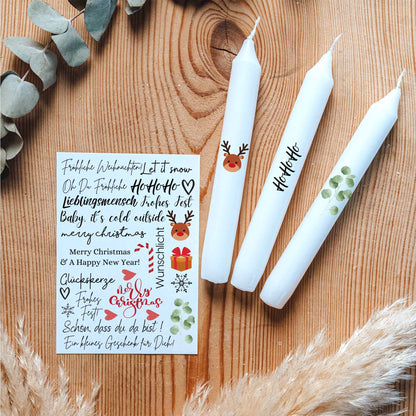 Fröhliche Weihnachten Let it snow
Oh Du Fröhliche HoHoHo
Lieblingsmensch Frohes Fest
Baby, it's cold outside
merry christmas
Merry Christmas
& A Happy New Year!
Wunschlicht
Glückskerze
Frohes
Fest!
Merry
Christmas
Schön, dass du da bist!
Ein kleines Geschenk für Dich!
HoHoHo